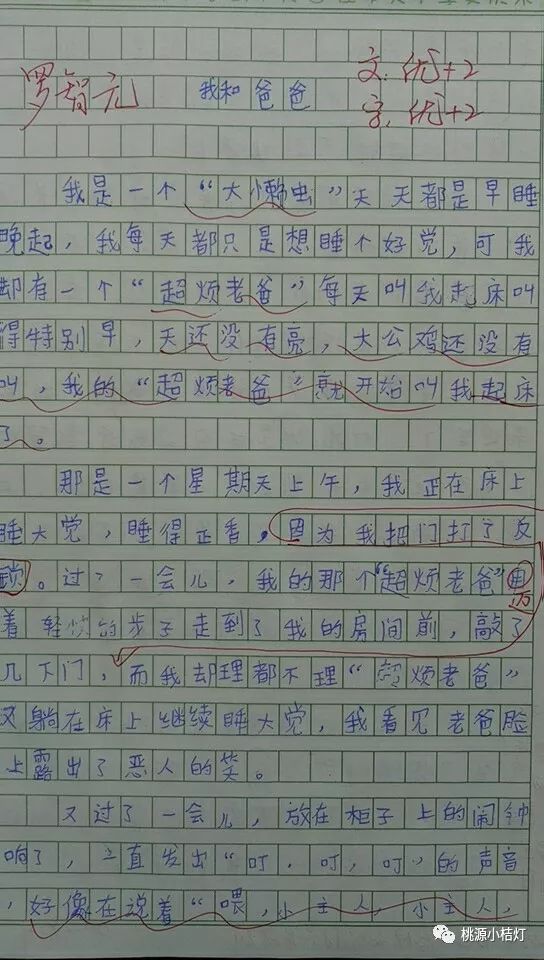 罗智元 我和爸爸 文:优+2
字:优+2
我是一个“大懒虫”天天都是早睡
晚起,我每天都只是想睡个好觉,可我
却有一个“超烦老爸”每天叫我起床叫
得特别早,天还没有亮,大公鸡还没有
叫,我的“超烦老爸”就开始叫我起床
了。
那是一个星期天上午,我正在床上
睡大觉,睡得正香,因为我把门打了反
锁。过了一会儿,我的那个“超烦老爸”
着轻快的步子走到了我的房间前,敲了
几下门,而我却理都不理“超烦老爸”
又躺在床上继续睡大觉,我看见老爸脸
上露出了恶人的笑。
又过了一会儿,放在柜子上的闹钟
响了,一直发出“叮,叮,叮”的声音
,好像在说着“喂,小主人,小主人,
桃源小桔灯